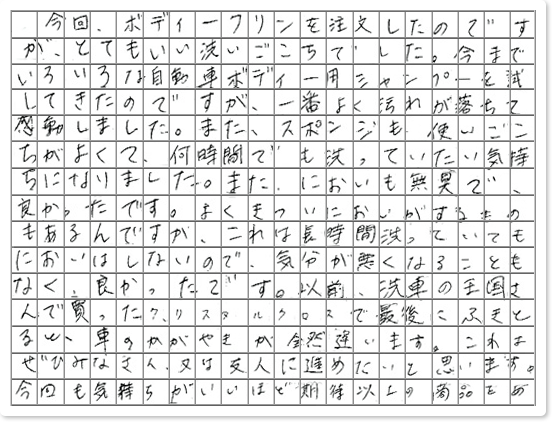 今回、ボディークリンを注文したのです
が、とてもいい洗いごこちでした。今まで
いろいろな自動車ボディー用シャンプーを試
してきたのですが、一番よく汚れが落ちて
感動しました。また、スポンジも使いごこ
ちがよくて、何時間でも洗っていたい気持
ちになりました。また、においも無臭で、
良かったです。よくきついにおいがするもの
もあるんですが、これは長時間洗っていても
においはしないので、気分が悪くなることも
なく、良かったです。以前、洗車の王国さ
んで買ったクリスタルクロスで最後にふきと
ると、車のかがやきが全然違います。これは
ぜひみなさん、又は友人に進めたいて思います。
今回も気持ちがいいほど期待以上の商品をめ